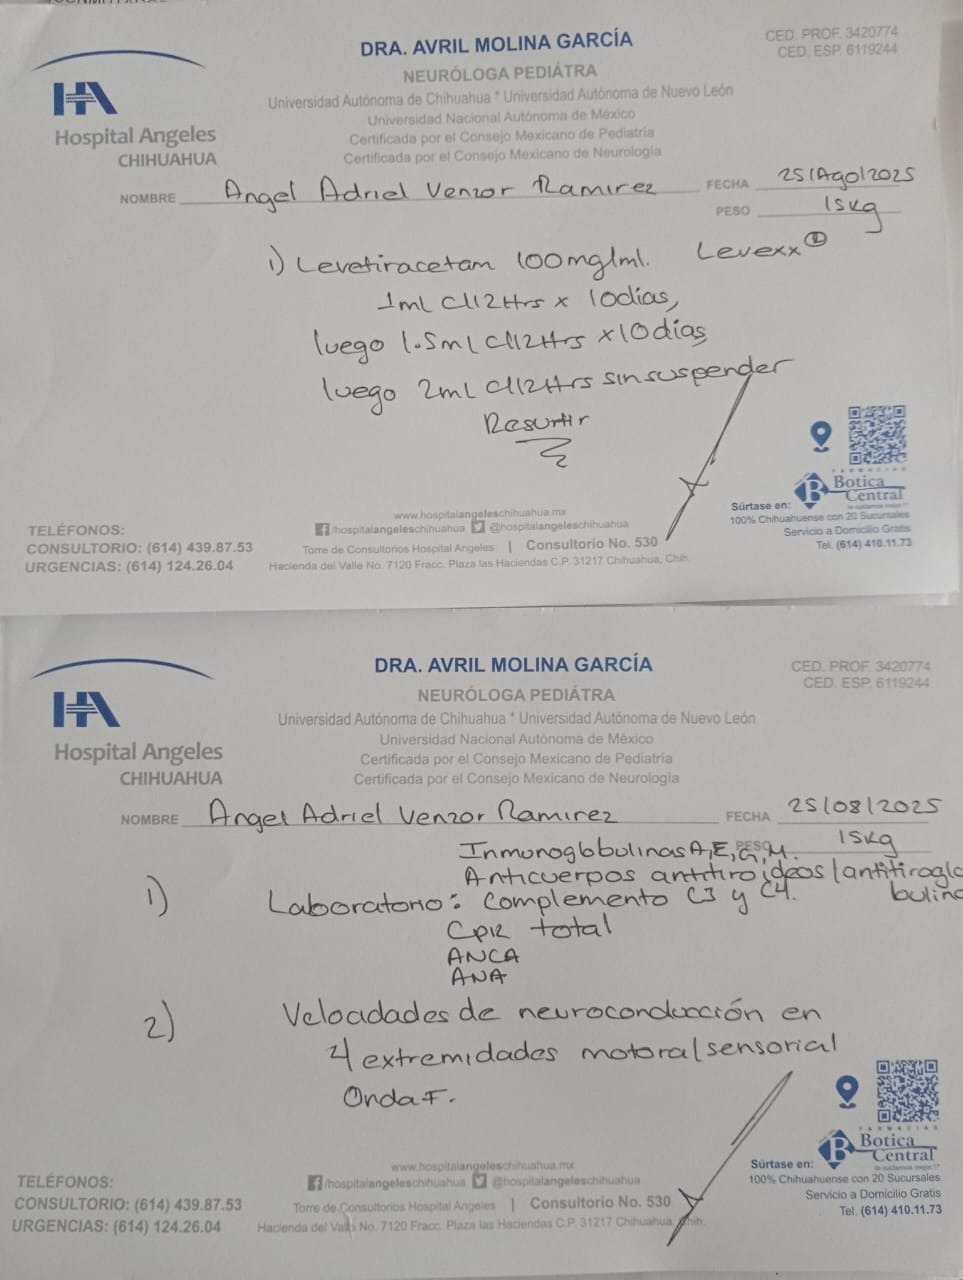 DRA. AVRIL MOLINA GARCÍA
CED. PROF. 3420774
CED. ESP. 6119244
NEURÓLOGA PEDIÁTRA
Universidad Autónoma de Chihuahua * Universidad Autónoma de Nuevo León
Universidad Nacional Autónoma de México
Certificada por el Consejo Mexicano de Pediatría
Certificada por el Consejo Mexicano de Neurología
HA
Hospital Angeles
CHIHUAHUA
NOMBRE Angel Adriel Venzor Ramirez FECHA 25/Ago/2025
PESO 15kg
1) Levetiracetam 100mg/ml. Levexx®
1ml c/12Hrs x 10dias,
luego 1.5ml c/12Hrs x10dias
luego 2ml c/12Hrs sin suspender
Resurtir
Súrtase en:
FARMACIAS
Botica Central
100% Chihuahuense con 20 Sucursales
Servicio a Domicilio Gratis
Tel. (614) 410.11.73
www.hospitalangeleschihuahua.mx
/hospitalangeleschihuahua @hospitalangeleschihuahua
TELÉFONOS:
CONSULTORIO: (614) 439.87.53
URGENCIAS: (614) 124.26.04
Torre de Consultorios Hospital Angeles | Consultorio No. 530
Hacienda del Valle No. 7120 Fracc. Plaza las Haciendas C.P. 31217 Chihuahua, Chih.
DRA. AVRIL MOLINA GARCÍA
CED. PROF. 3420774
CED. ESP. 6119244
NEURÓLOGA PEDIÁTRA
Universidad Autónoma de Chihuahua * Universidad Autónoma de Nuevo León
Universidad Nacional Autónoma de México
Certificada por el Consejo Mexicano de Pediatría
Certificada por el Consejo Mexicano de Neurología
HA
Hospital Angeles
CHIHUAHUA
NOMBRE Angel Adriel Venzor Ramirez FECHA 25/08/2025
PESO 15kg
Inmunoglobulinas A, E, G, M.
Anticuerpos antitiroideos/antitiroglo
bulina
1) Laboratorio: Complemento C3 y C4.
CPK total
ANCA
ANA
2) Velocidades de neuroconducción en
4 extremidades motora/sensorial
Onda F.
Súrtase en:
FARMACIAS
Botica Central
100% Chihuahuense con 20 Sucursales
Servicio a Domicilio Gratis
Tel. (614) 410.11.73
www.hospitalangeleschihuahua.mx
/hospitalangeleschihuahua @hospitalangeleschihuahua
TELÉFONOS:
CONSULTORIO: (614) 439.87.53
URGENCIAS: (614) 124.26.04
Torre de Consultorios Hospital Angeles | Consultorio No. 530
Hacienda del Valle No. 7120 Fracc. Plaza las Haciendas C.P. 31217 Chihuahua, Chih.